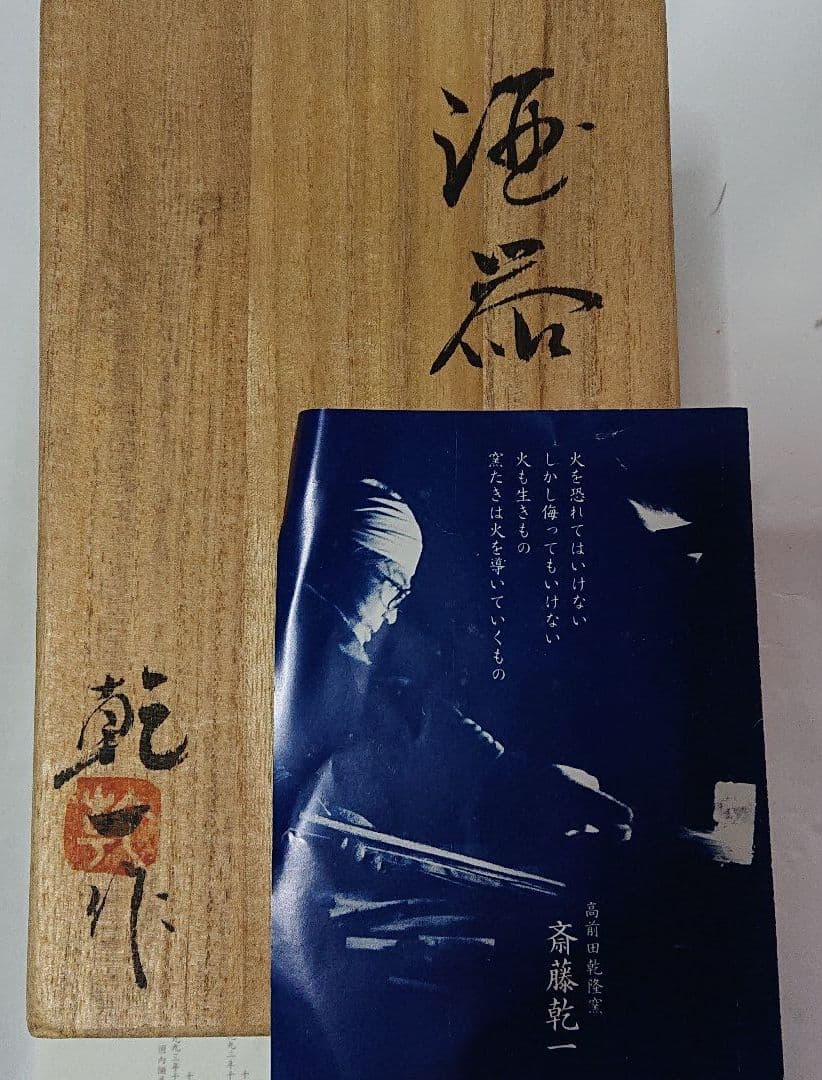 酒器
乾一作
火を恐れてはいけない
しかし侮ってもいけない
火も生きもの
窯たきは火を導いていくもの
高前田乾隆窯
斎藤乾一